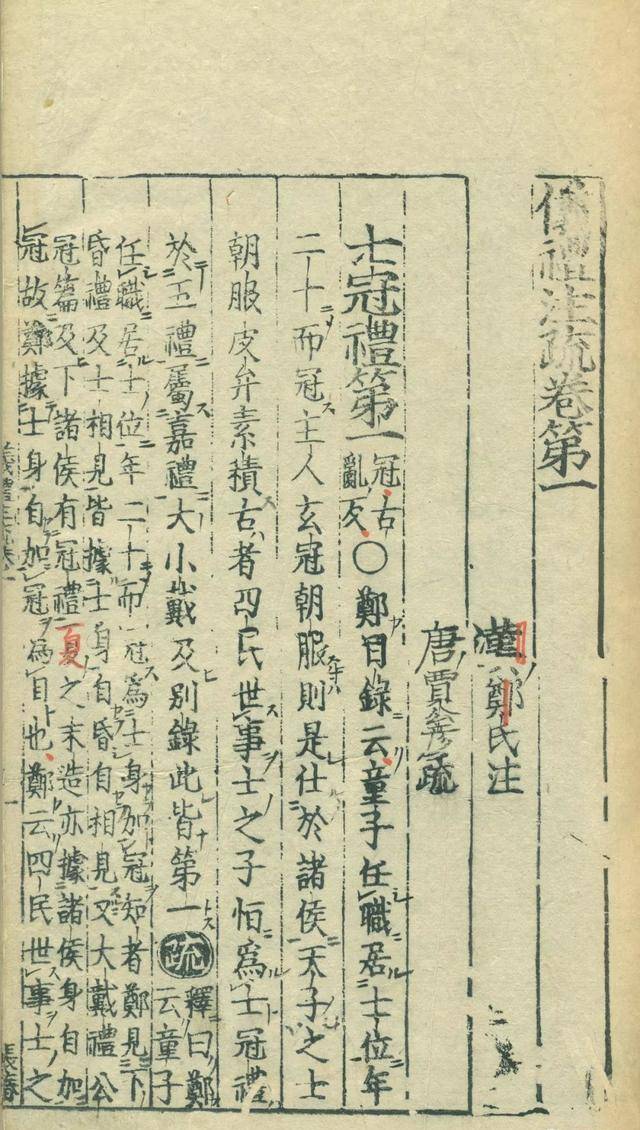 儀禮注疏卷第一
漢鄭氏注
唐賈公彥疏
士冠禮第一冠古亂反○鄭目錄云童子任職居士位年
二十而冠主人玄冠朝服則是仕於諸侯天子之士
朝服皮弁素積古者四民世事士之子恒爲士冠禮
於五禮屬嘉禮大小戴及別錄此皆第一疏釋曰鄭云童子
任職居士位年二十而冠爲士身加冠知者鄭見下
昏禮及士相見皆據士身自昏自相見又大戴禮公
冠篇及下諸侯有冠禮夏之末造亦據諸侯身自加
冠故鄭據士身自加冠爲目也鄭云四民世事士之